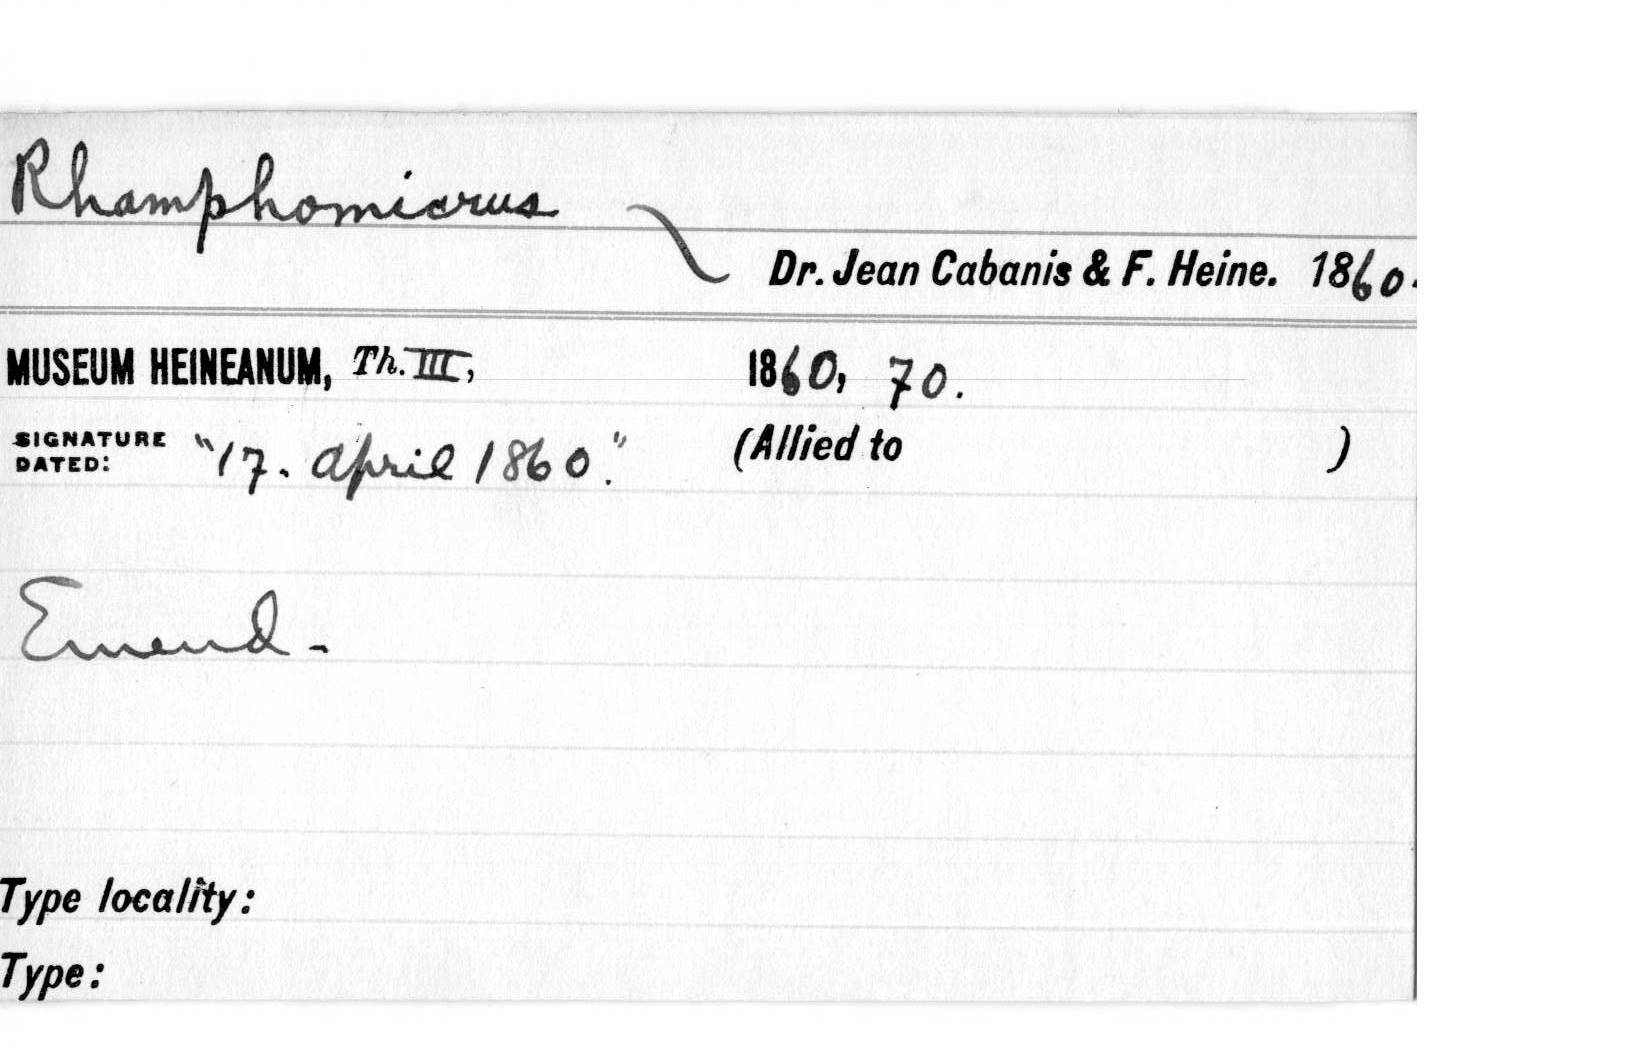 Rhamphomicrus
Dr. Jean Cabanis & F. Heine. 1860.
MUSEUM HEINEANUM, Th. III, 1860, 70.
SIGNATURE DATED: "17. April 1860." (Allied to )
Emend.
Type locality:
Type: